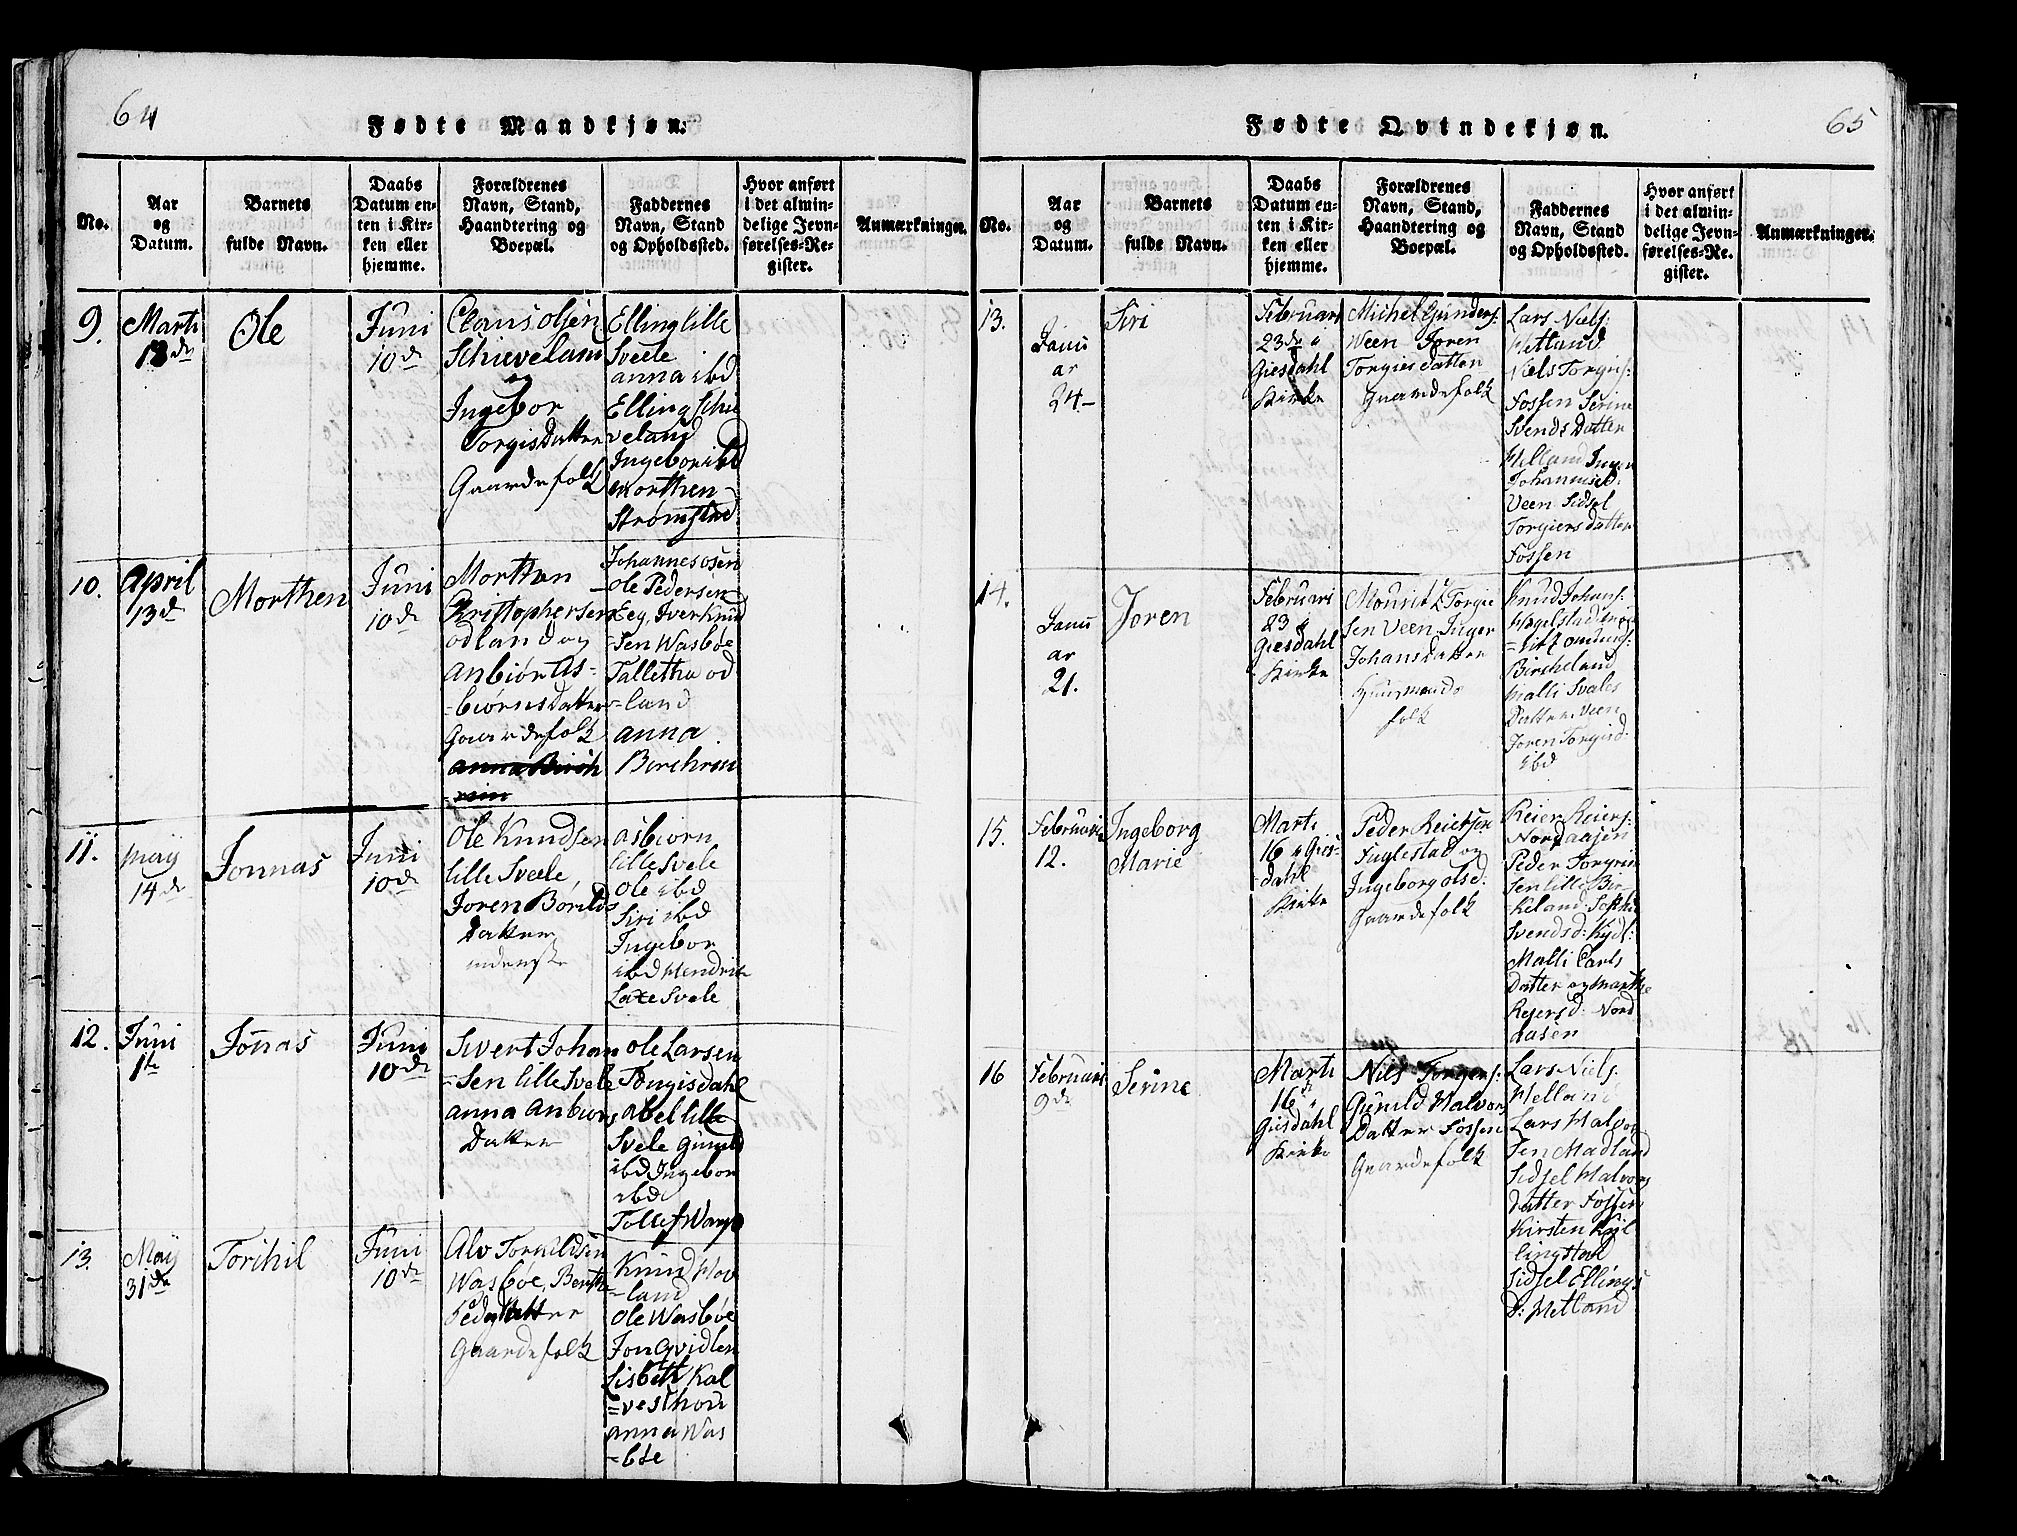 64
Fødte Mandkjøn.
No.
Aar
og
Datum.
Barnets
fulde Navn.
Daabs
Datum en-
ten i Kir-
ken eller
hjemme.
Forældrenes
Navn, Stand,
Haandtering og
Boepæl.
Faddernes
Navn, Stand
og Opholdssted.
Hvor anført
i det almin-
delige Jevn-
førelses-Re-
gister.
Anmærkninger.
9.
Marti
Ole
Juni
10 d
Claus olsen
Schievelann
og
Ingebor
Torgisdatter
Gaardefolk
Elling lille
Svele
anna ibd
Elling Schie
veland
Ingebor ibd
Morthen
Strømstad
10.
April
13 d
Morthen
Juni
10 d
Morthen
Christophersen
odland og
Anbiør As-
-biørnsdatter
Gaardefolk
Johannes osen
ole Pedersen
Eeg, Iver Knud
=sen Wasbøe
Talletha od
=land
anna
11.
May
14 d
Jonnas
Juni
10 d
Ole Knudsen
lille Svele,
Joren Børilds
Datter
asbiorn
lille Svele
Ole ibd
Siri ibd
Ingebor
ibd Hendrik
Laxesvele
12.
Juni
1 te
Jonas
Juni
10 d
Sivert Johan
=sen lille Svele
anna Anbiørs
Datter
ole Larsen
Tongisdahl
abel lille
Svele Gunild
ibd Ingebor
ibd
13.
May
31 d
Torikil
Juni
10 d
Alv Torkildsen
Wasbøe, Benthe
Gaardefolk
Knud Hov
=land
Ole Wasbøe
Jon Qvidlen
Lisbeth Kal
=vesthon
anna Was
=bøe
65
Fødte Qvindekjøn.
No.
Aar
og
Datum.
Barnets
fulde Navn.
Daabs
Datum en-
ten i Kir-
ken eller
hjemme.
Forældrenes
Navn, Stand,
Haandtering og
Boepæl.
Faddernes
Navn, Stand
og Opholdssted.
Hvor anført
i det almin-
delige Jevn-
førelses-Re-
gister.
Anmærkninger.
13.
Janu
ar
24
Siri
Februari
23 d i
Giesdahl
Kirke
Michel Gunders:
Veen Joren
Torgiesdatter
Gaardefolk
Lars Niels:
Hetland
Niels Torgies:
Fossen Serine
Svends Datter
Helland Inger
Johannisd:
Veen Sidsel
Torgiers datter
Fossen
14.
Janu
ar
21.
Joren
Februari
23 i
Giesdahl
Kirke
Mourits Torgie
sen Veen Inger
Johansdatter
Huusmands
folk
Knud Johans:
Bircheland
Malli Svales
Datter Veen
Joren Torgisd:
ibd
15.
Februari
12.
Ingeborg
Marie
Marti
16 i Gies-
-dahl
Kirke
Peder Reiersen
Fuglestad og
Ingeborg olsd:
Gaardefolk
Reier Reiers:
Nordaasen
Peder Torgri
sen lille Bir-
-keland Sophie
Svendsd: Kydl:
Malli Carls
Datter og Marthe
Reiersd: Nord
aasen
16
Februari
9 de
Serine
Marti
16 i
Giesdahl
Kirke
Niels Torgers:
Gunild Halvors
Datter Fossen
Gaardefolk
Lars Niels:
Helland
Lars Halvor
sen Madland
Sidsel Halvors
Datter Fossen
Kirsten Kyl
lingstad
Sidsel Ellings
D: Hetland